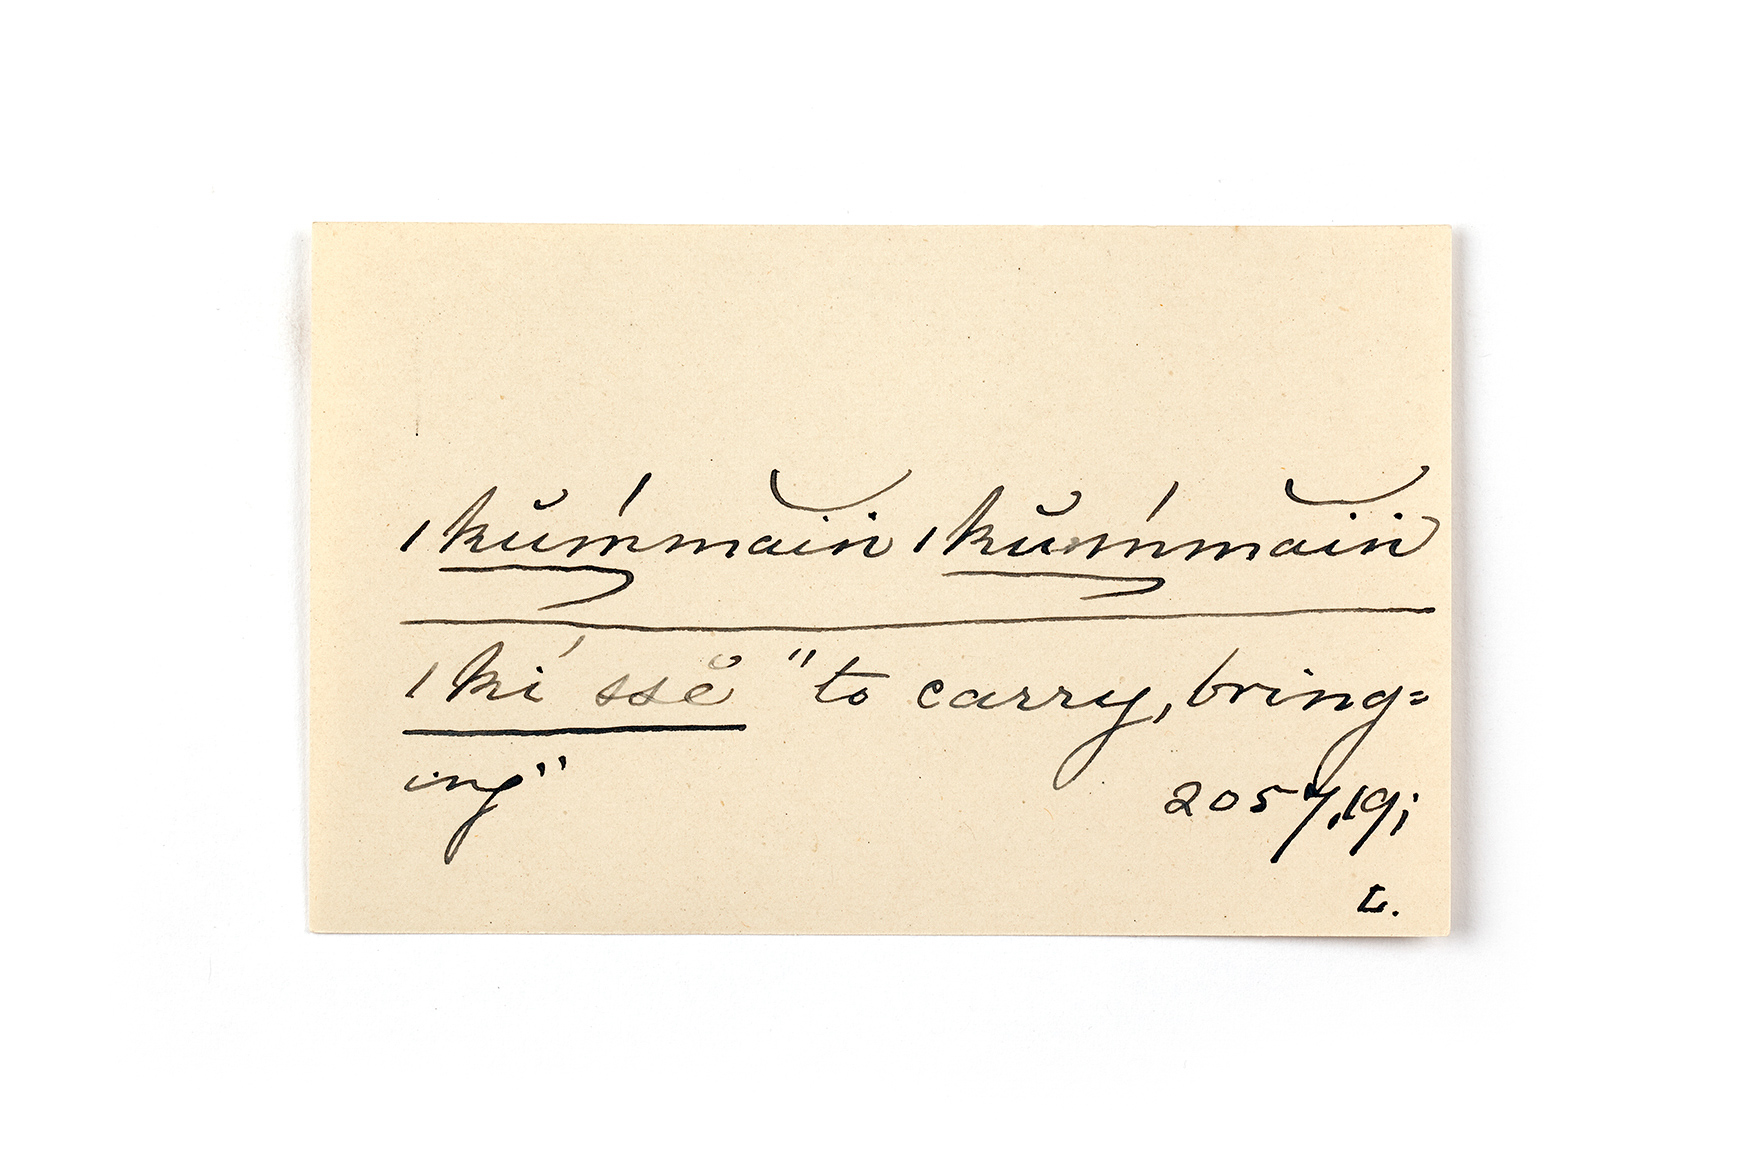 ıkŭḿmăin ıkŭḿmăin
ıkí ssĕ "to carry, bring=
ing"
2057,19;
L.